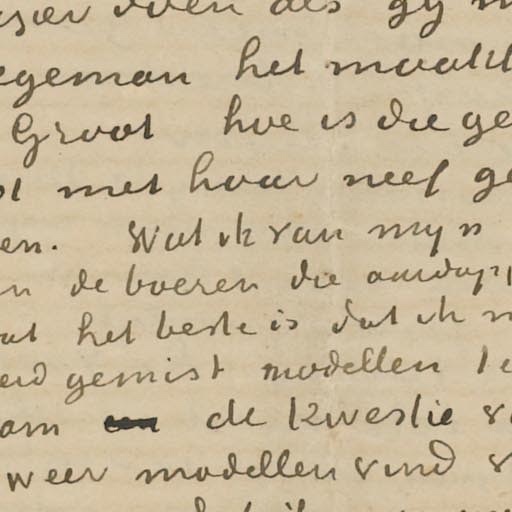 doen als gy
egeman het maakt
Groot hoe is die ge
met haar neef ge
en. Wat ik van myn
de boeren die aardapp
at het beste is dat ik
eid gemist modellen
om de kwestie v
weer modellen vind v